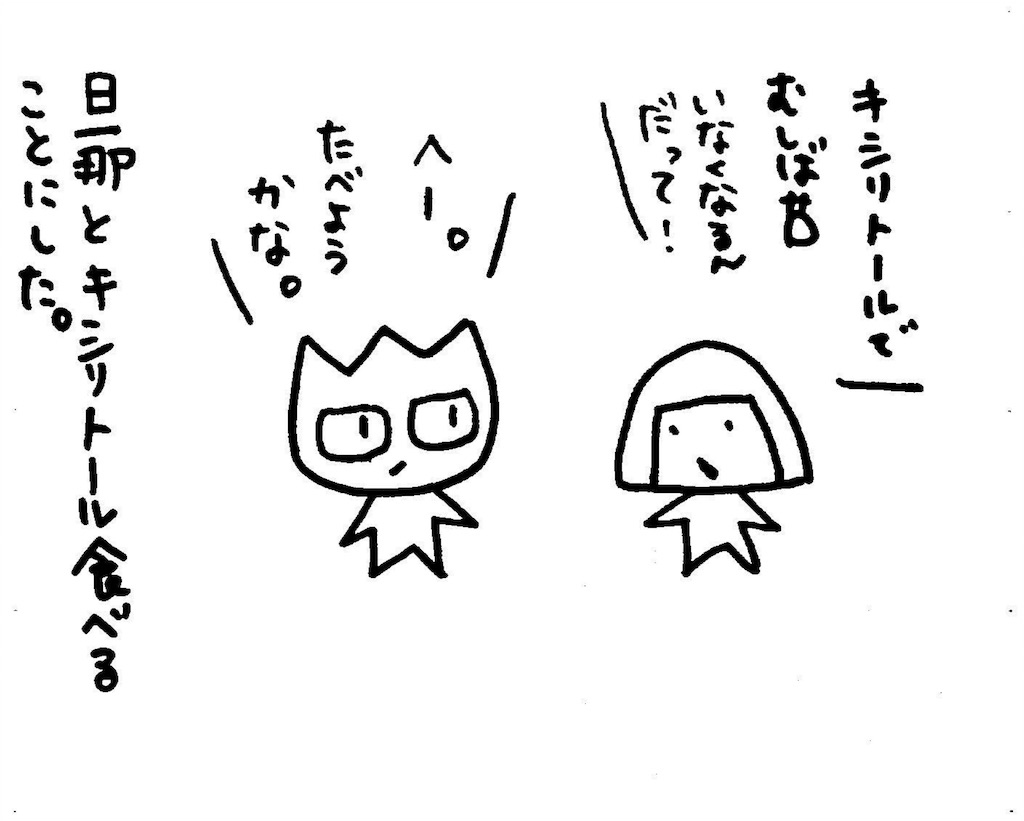 キシリトールで
むしば菌
いなくなる〜
だって!
へー。
たべよう
かな。
旦那とキシリトール食べる
ことにした。